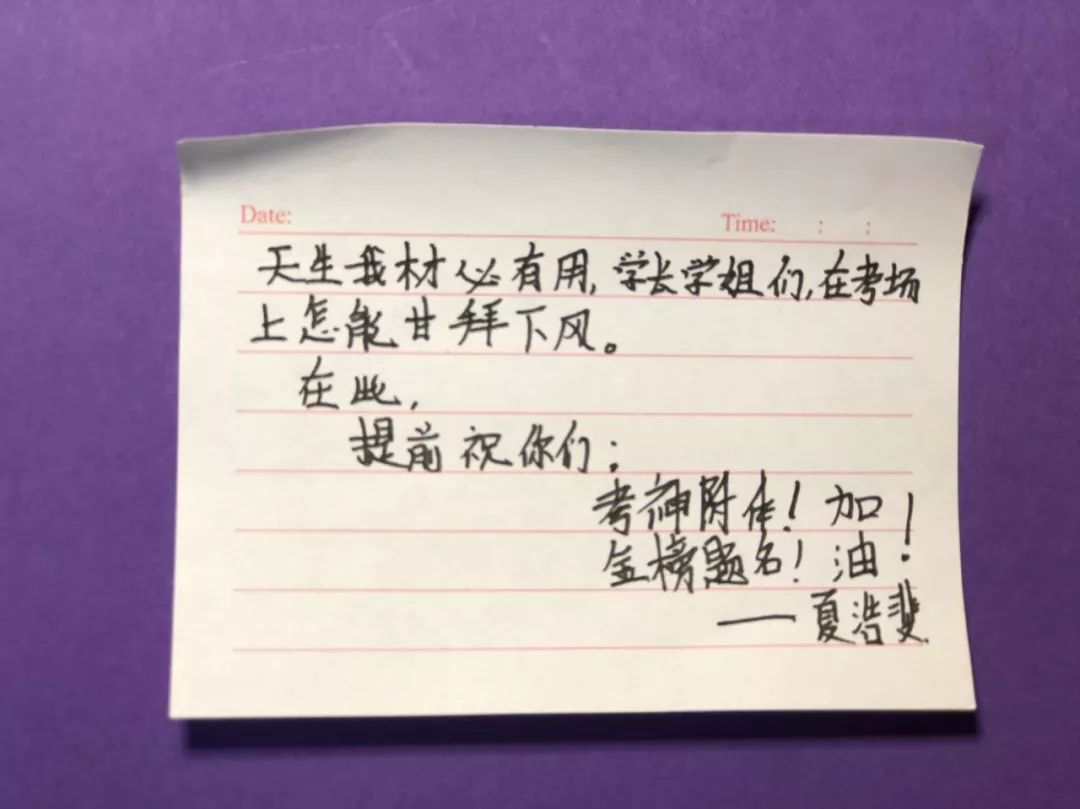 Date:
Time: : :
天生我材必有用,学长学姐们,在考场
上怎能甘拜下风。
在此,
提前祝你们:
考神附体!加
金榜题名!油!
——夏浩斐